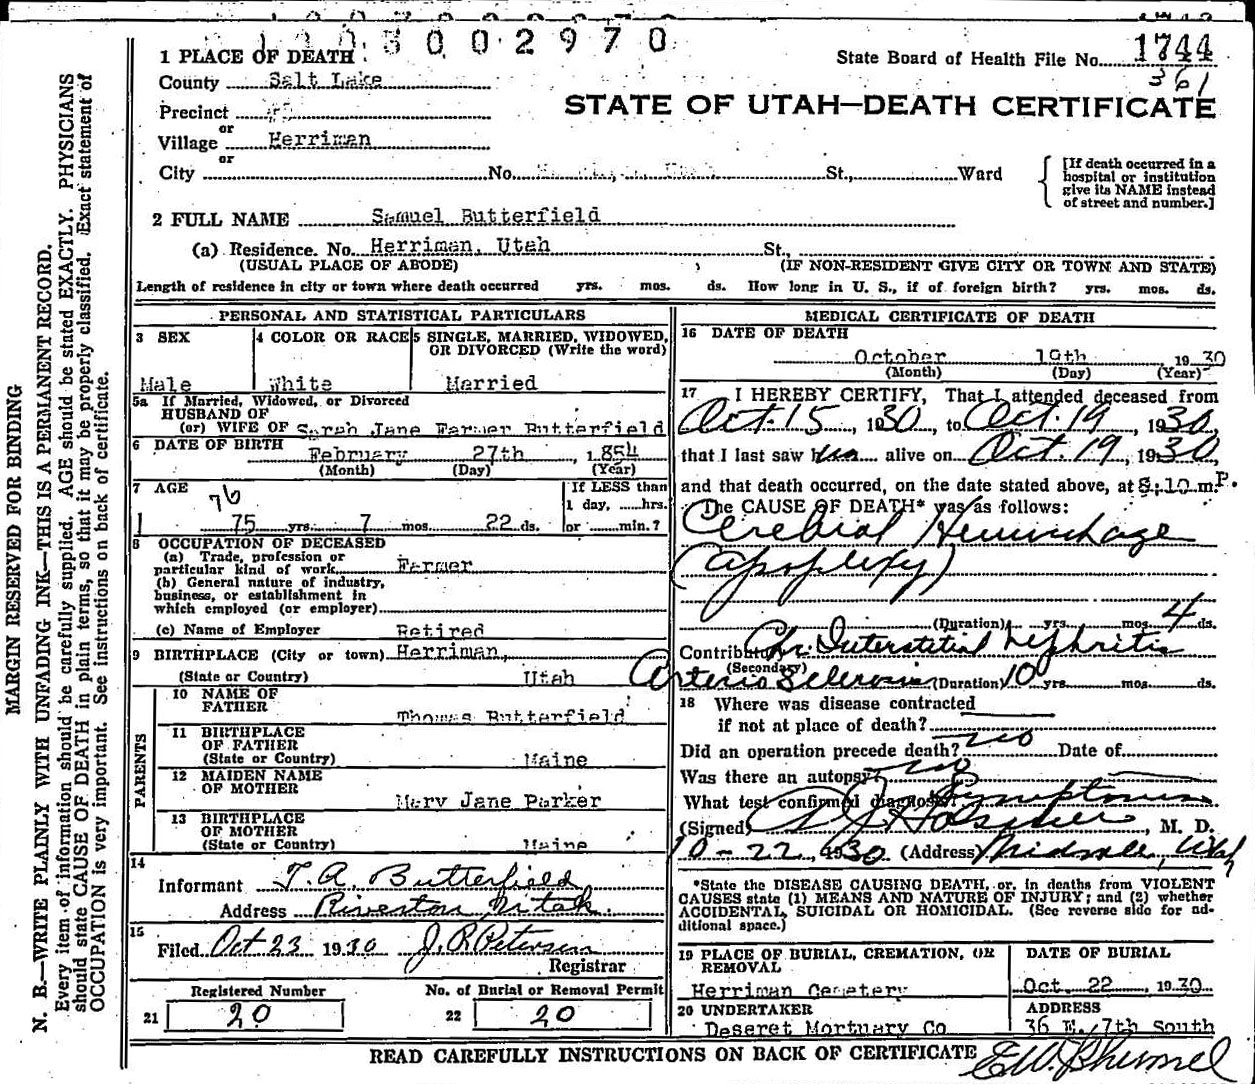 1003002970
1 PLACE OF DEATH
State Board of Health File No. 1744
361
County Salt Lake
STATE OF UTAH—DEATH CERTIFICATE
Precinct
or
Village Herriman
or
City No. St., Ward
[If death occurred in a
hospital or institution
give its NAME instead
of street and number.]
2 FULL NAME Samuel Butterfield
(a) Residence. No. Herriman, Utah St.,
(USUAL PLACE OF ABODE) (IF NON-RESIDENT GIVE CITY OR TOWN AND STATE)
Length of residence in city or town where death occurred yrs. mos. ds. How long in U. S., if of foreign birth? yrs. mos. ds.
PERSONAL AND STATISTICAL PARTICULARS
3 SEX
Male
4 COLOR OR RACE
White
5 SINGLE, MARRIED, WIDOWED,
OR DIVORCED (Write the word)
Married
5a If Married, Widowed, or Divorced
HUSBAND OF
(or) WIFE OF Sarah Jane Farmer Butterfield
6 DATE OF BIRTH
February 27th, 1854
(Month) (Day) (Year)
7 AGE
76
75 yrs. 7 mos. 22 ds.
If LESS than
1 day, ......hrs.
or ......min.?
8 OCCUPATION OF DECEASED
(a) Trade, profession or
particular kind of work Farmer
(b) General nature of industry,
business, or establishment in
which employed (or employer)
(c) Name of Employer Retired
9 BIRTHPLACE (City or town) Herriman,
(State or Country) Utah
PARENTS
10 NAME OF
FATHER
Thomas Butterfield
11 BIRTHPLACE
OF FATHER
(State or Country) Maine
12 MAIDEN NAME
OF MOTHER
Mary Jane Parker
13 BIRTHPLACE
OF MOTHER
(State or Country) Maine
14
Informant T. A. Butterfield
Address Riverton Utah.
15
Filed Oct 23 1930 J. R. Petersen
Registrar
Registered Number No. of Burial or Removal Permit
21 20 22 20
MEDICAL CERTIFICATE OF DEATH
16 DATE OF DEATH
October 19th 1930
(Month) (Day) (Year)
17 I HEREBY CERTIFY, That I attended deceased from
Oct. 15, 1930, to Oct. 19, 1930,
that I last saw him alive on Oct. 19, 1930,
and that death occurred, on the date stated above, at 8:10 m P.
The CAUSE OF DEATH* was as follows:
Cerebral Hemorrhage
(apoplexy)
(Duration) yrs. mos. 4 ds.
Contributory Chr. Interstitial Nephritis
(Secondary)
Arterio Sclerosis (Duration) 10 yrs. mos. ds.
18 Where was disease contracted
if not at place of death?
Did an operation precede death? no Date of
Was there an autopsy? no
What test confirmed diagnosis? Symptoms
(Signed) M. D.
10-22, 1930 (Address) Midvale, Utah
*State the DISEASE CAUSING DEATH, or, in deaths from VIOLENT
CAUSES state (1) MEANS AND NATURE OF INJURY; and (2) whether
ACCIDENTAL, SUICIDAL OR HOMICIDAL. (See reverse side for ad-
ditional space.)
19 PLACE OF BURIAL, CREMATION, OR
REMOVAL
Herriman Cemetery
DATE OF BURIAL
Oct. 22, 1930
20 UNDERTAKER
Deseret Mortuary Co
ADDRESS
36 E. 7th South
READ CAREFULLY INSTRUCTIONS ON BACK OF CERTIFICATE
MARGIN RESERVED FOR BINDING
N. B.—WRITE PLAINLY WITH UNFADING INK—THIS IS A PERMANENT RECORD.
Every item of information should be carefully supplied. AGE should be stated EXACTLY. PHYSICIANS
should state CAUSE OF DEATH in plain terms, so that it may be properly classified. Exact statement of
OCCUPATION is very important. See instructions on back of certificate.